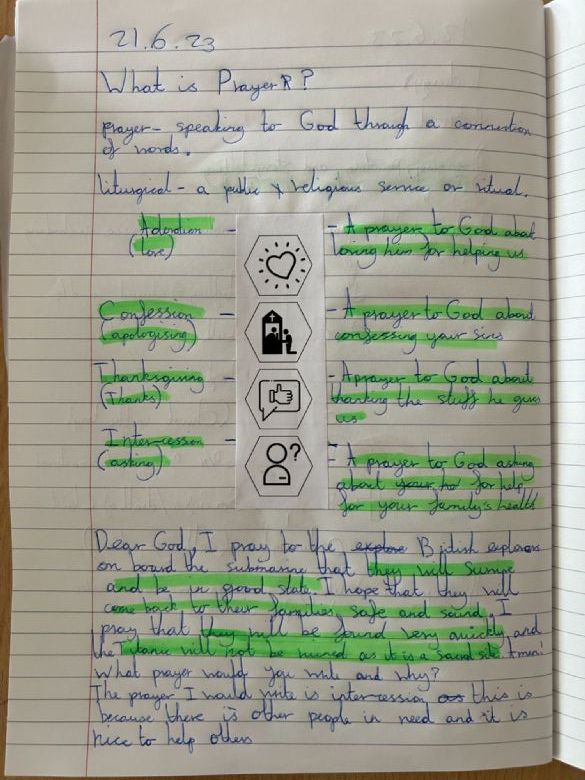 21.6.23
What is Prayer?
Prayer- speaking to God through a
of words.
liturgical - a public religious service or ritual.
Adoration - - A prayer to God about
(love) loving him for helping us
Confession - - A prayer to God about
(apologising) confessing your sins
Thanksgiving - - A prayer to God about
(Thanks) thanking the stuff he gives
us
Intercession - ?
(asking) - A prayer to God asking
about your for help
for your family's health
Dear God, I pray to the explore British explorers
on board the submarine that they will
and be in good state. I hope that they will
come back to their families safe and sound, I
pray that they will be found very quickly and
the Titanic will not be ruined as it is a sacred site. Amen!
What prayer would you write and why?
The prayer I would write is intercession as this is
because there is other people in need and it is
nice to help others